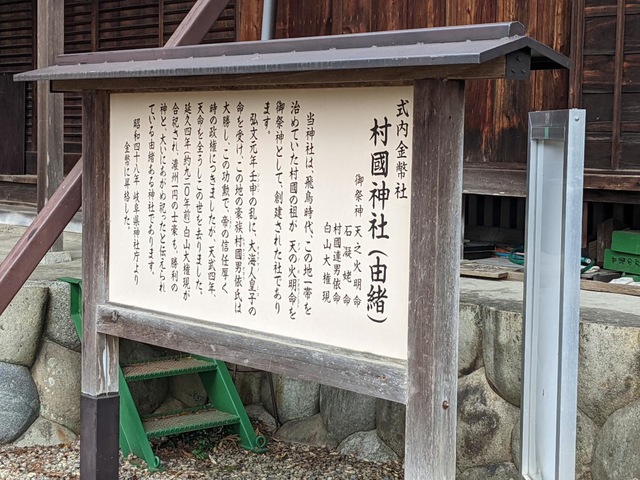 式内金幣社
村國神社(由緒)
御祭神 天之火明命
石凝姥命
村國連男依命
白山大権現
当神社は、飛鳥時代、この地一帯を
治めていた村國の祖が、天の火明命を
御祭神として、創建された社であり
ます。
弘文元年壬申の乱に、大海人皇子の
命を受け、この地の豪族村國男依氏は
大勝し、この功勲で、帝の信任厚く、
時の政権につきましたが、天武四年、
天命を全うしこの世を去りました。
延久四年(約九二〇年前)白山大権現が
合祀され、濃州一円の士豪も、勝利の
神と、大いにあがめ祀ったと伝えられ
ている由緒ある神社であります。
昭和四十八年 岐阜県神社庁より
金幣に昇格した。